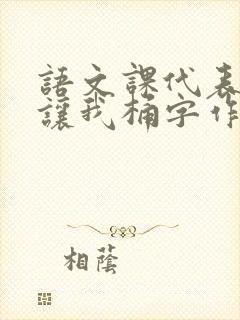 語文課代表
讓我桶字作
相蔭